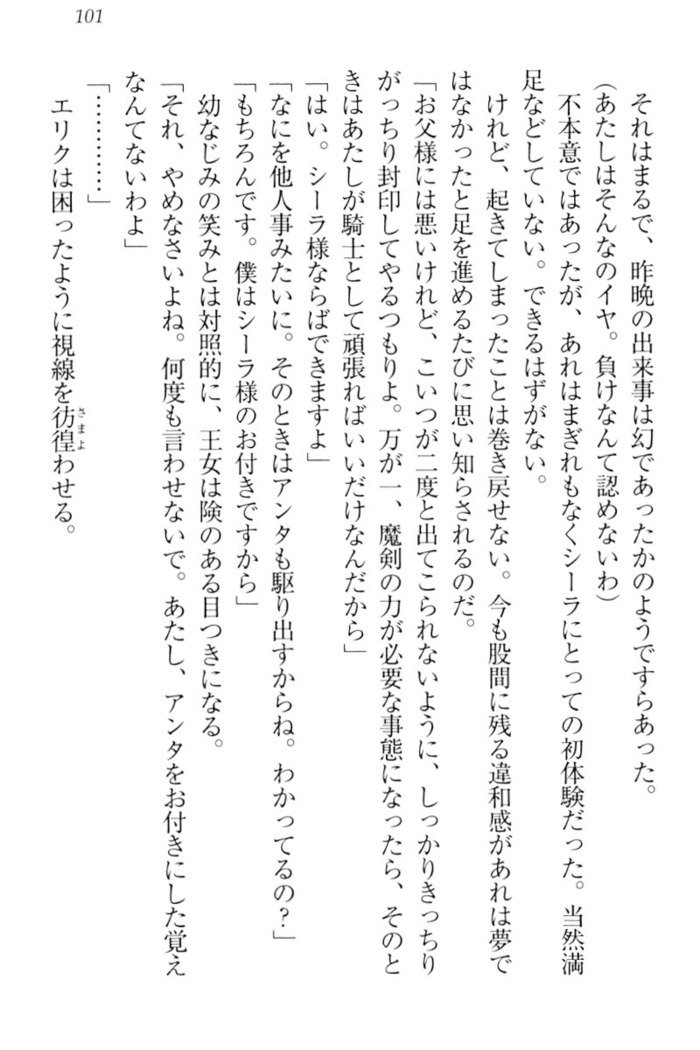 101
それはまるで、昨晩の出来事は幻であったかのようですらあった。
(あたしはそんなのイヤ。負けなんて認めないわ)
不本意ではあったが、あれはまぎれもなくシーラにとっての初体験だった。当然満
足などしていない。できるはずがない。
けれど、起きてしまったことは巻き戻せない。今も股間に残る違和感があれは夢で
はなかったと足を進めるたびに思い知らされるのだ。
「お父様には悪いけれど、こいつが二度と出てこられないように、しっかりきっちり
がっちり封印してやるつもりよ。万が一、魔剣の力が必要な事態になったら、そのと
きはあたしが騎士として頑張ればいいだけなんだから」
「はい。シーラ様ならばできますよ」
「なにを他人事みたいに。そのときはアンタも駆り出すからね。わかってるの?」
「もちろんです。僕はシーラ様のお付きですから」
幼なじみの笑みとは対照的に、王女は険のある目つきになる。
「それ、やめなさいよね。何度も言わせないで。あたし、アンタをお付きにした覚え
なんてないわよ」
「…………」
エリクは困ったように視線を彷徨わせる。
さまよ